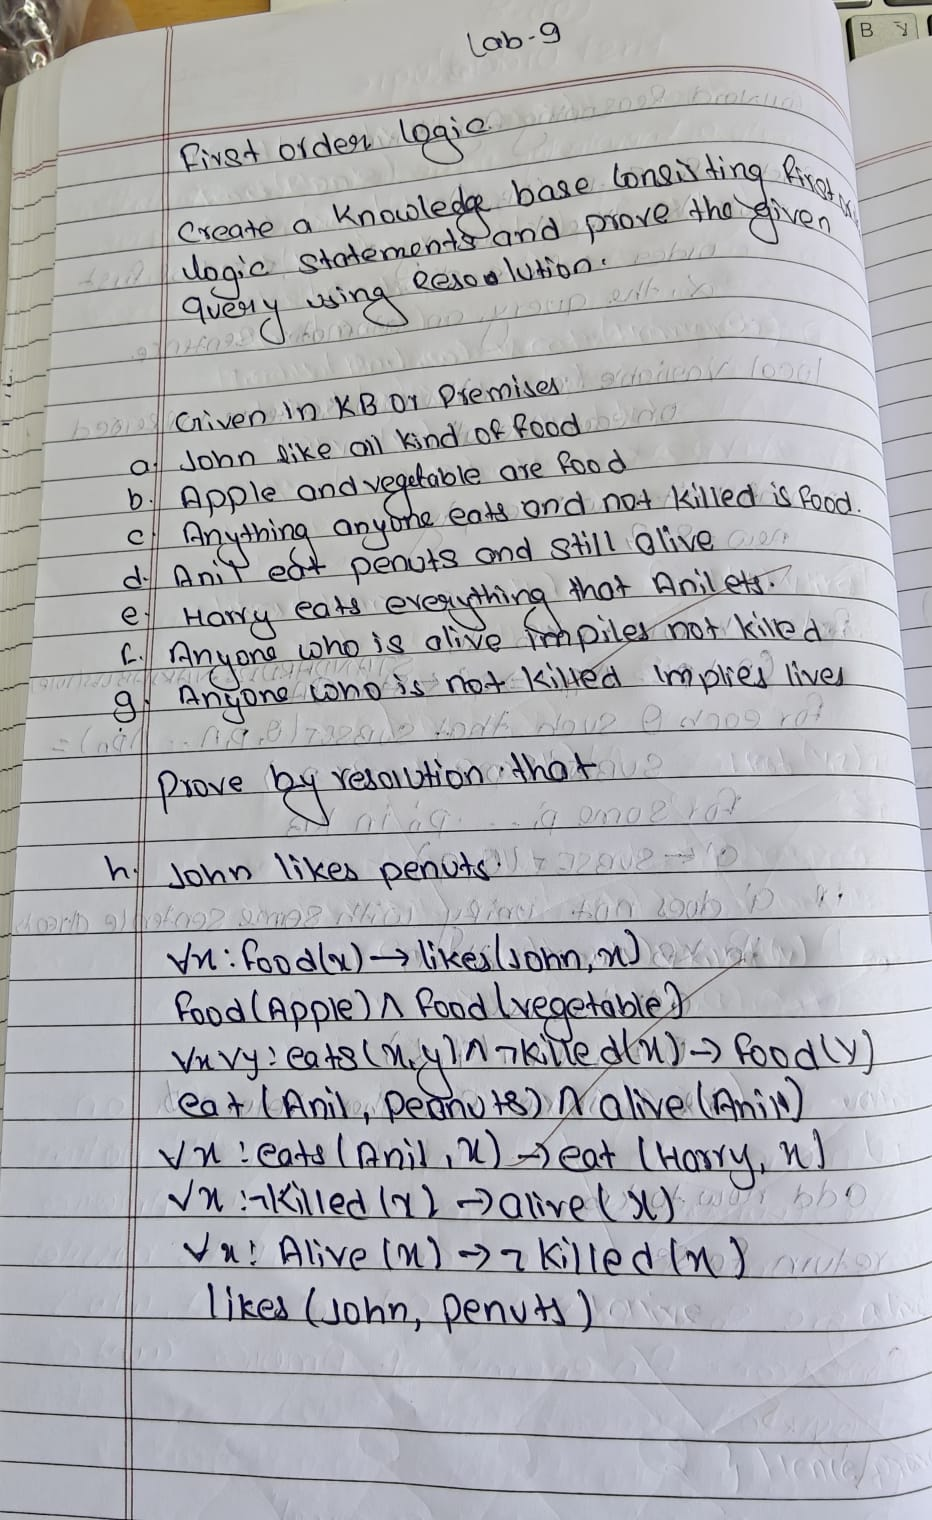 B y
Lab-9
First order logic
Create a Knowledge base Consisting first
logic statements and prove the given
query using Resolution.
Given in KB Or Premises
a. John like all kind of food
b. Apple and vegetable are food
c. Anything anyone eats and not killed is food.
d. Anil eat penuts and still alive
e. Harry eats everything that Anil ets.
f. Anyone who is alive impiles not killed
g. Anyone who is not killed implies lives
Prove by resolution that
h. John likes penuts
∀x : food(x) → likes(John, x)
food(Apple) ∧ food(vegetable)
∀x∀y : eats(x, y) ∧ ¬killed(x) → food(y)
eat (Anil, Peanuts) ∧ alive (Anil)
∀x : eats (Anil, x) → eat (Harry, x)
∀x : ¬Killed (x) → alive (x)
∀x : Alive (x) → ¬ killed (x)
likes (John, penuts)